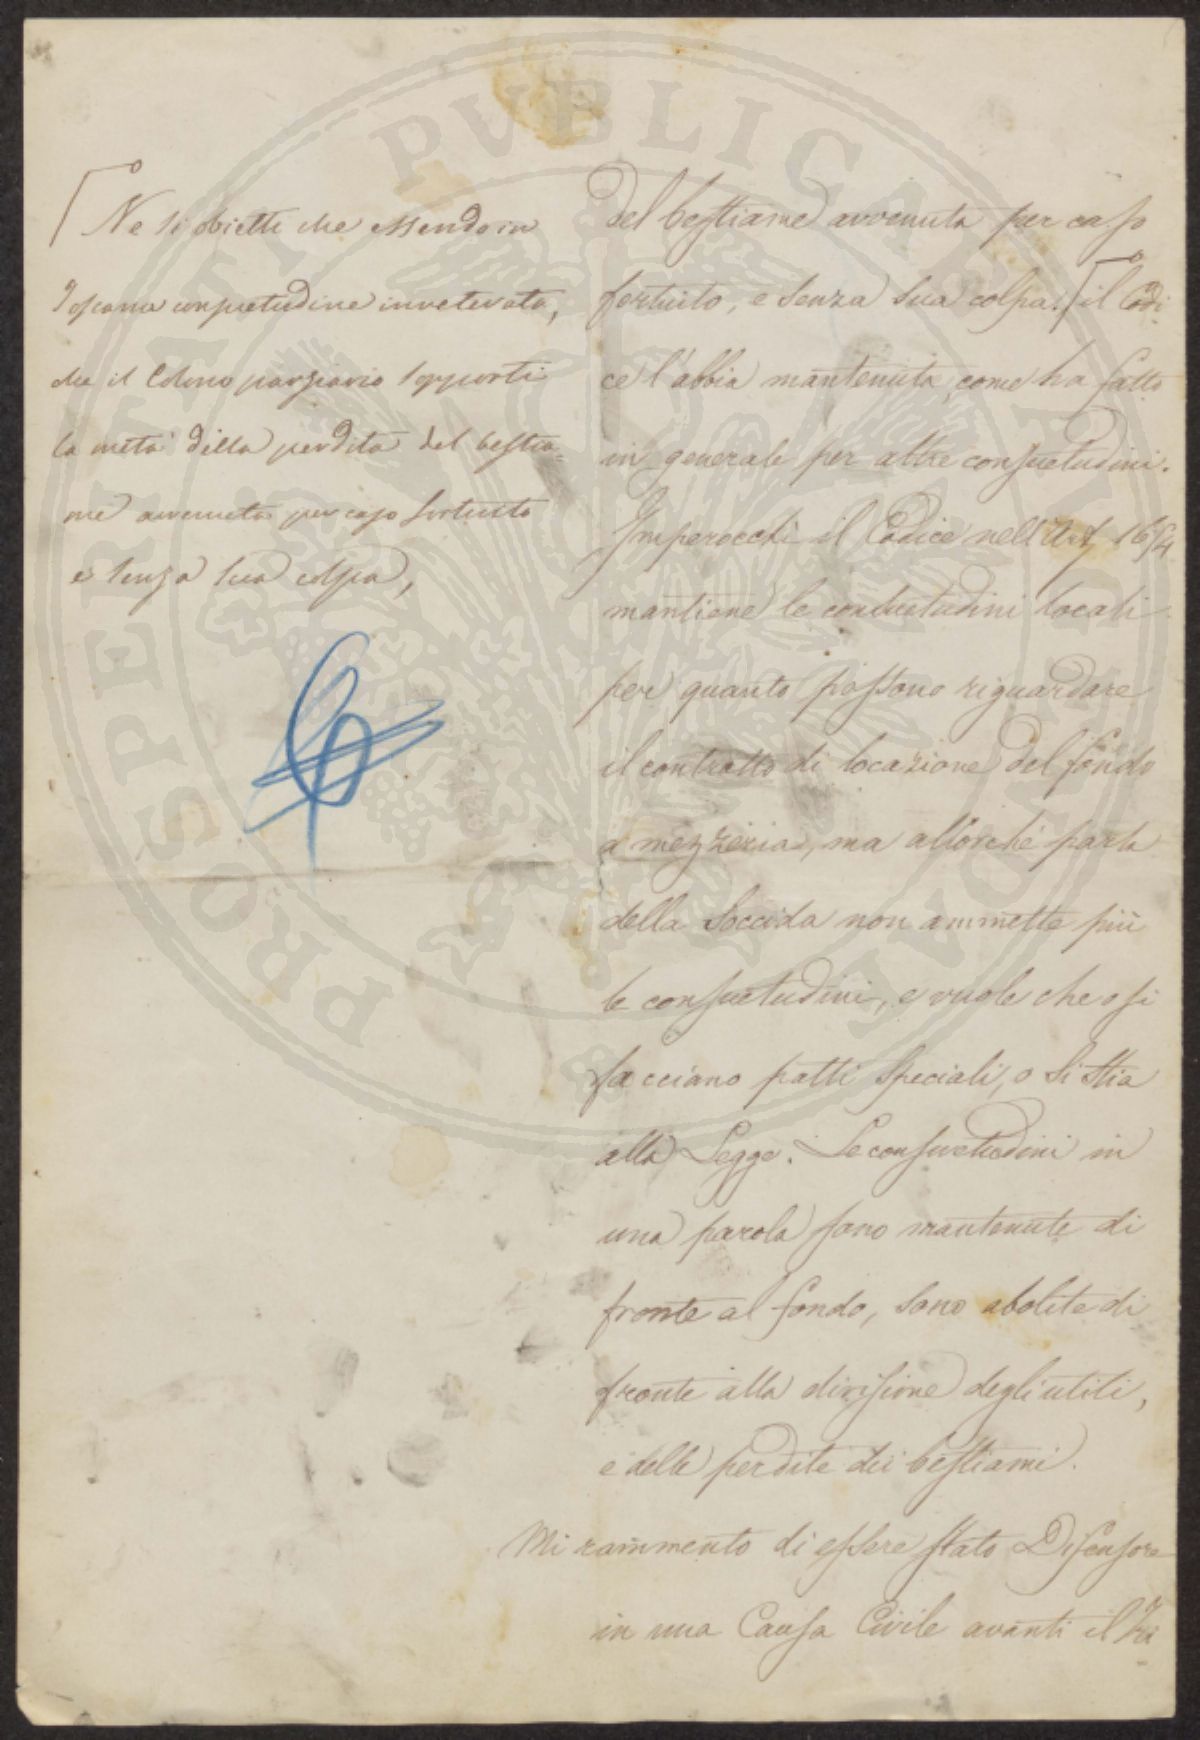 Ne si obietti che essendo in
Toscana consuetudine inveterata,
che il Colono parziario sopporti
la metà della perdita del bestia=
me avvenuta per caso fortuito
e senza sua colpa,
del bestiame avvenuta per caso
fortuito, e senza sua colpa. il Codi
ce l'abbia mantenuta, come ha fatto
in generale per altre consuetudini.
Imperocchè il Codice nell'Art 1654
mantiene le consuetudini locali
per quanto possono riguardare
il contratto di locazione del fondo
a mezzeria, ma allorchè parla
della Soccida non ammette più
le consuetudini, e vuole che o si
facciano patti speciali, o si stia
alla Legge. Le consuetudini in
una parola sono mantenute di
fronte al fondo, sono abolite di
fronte alla divisione degli utili,
e delle perdite dei bestiami.
Mi rammento di essere stato Difensore
in una Causa Civile avanti il Tri
PROSPERITATI PVBLICAE PROVIDENDAE